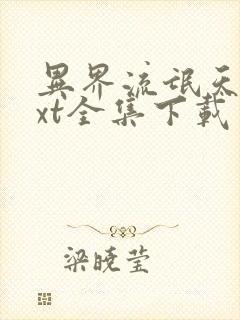 異界流氓天
xt全集下載
梁曉莹